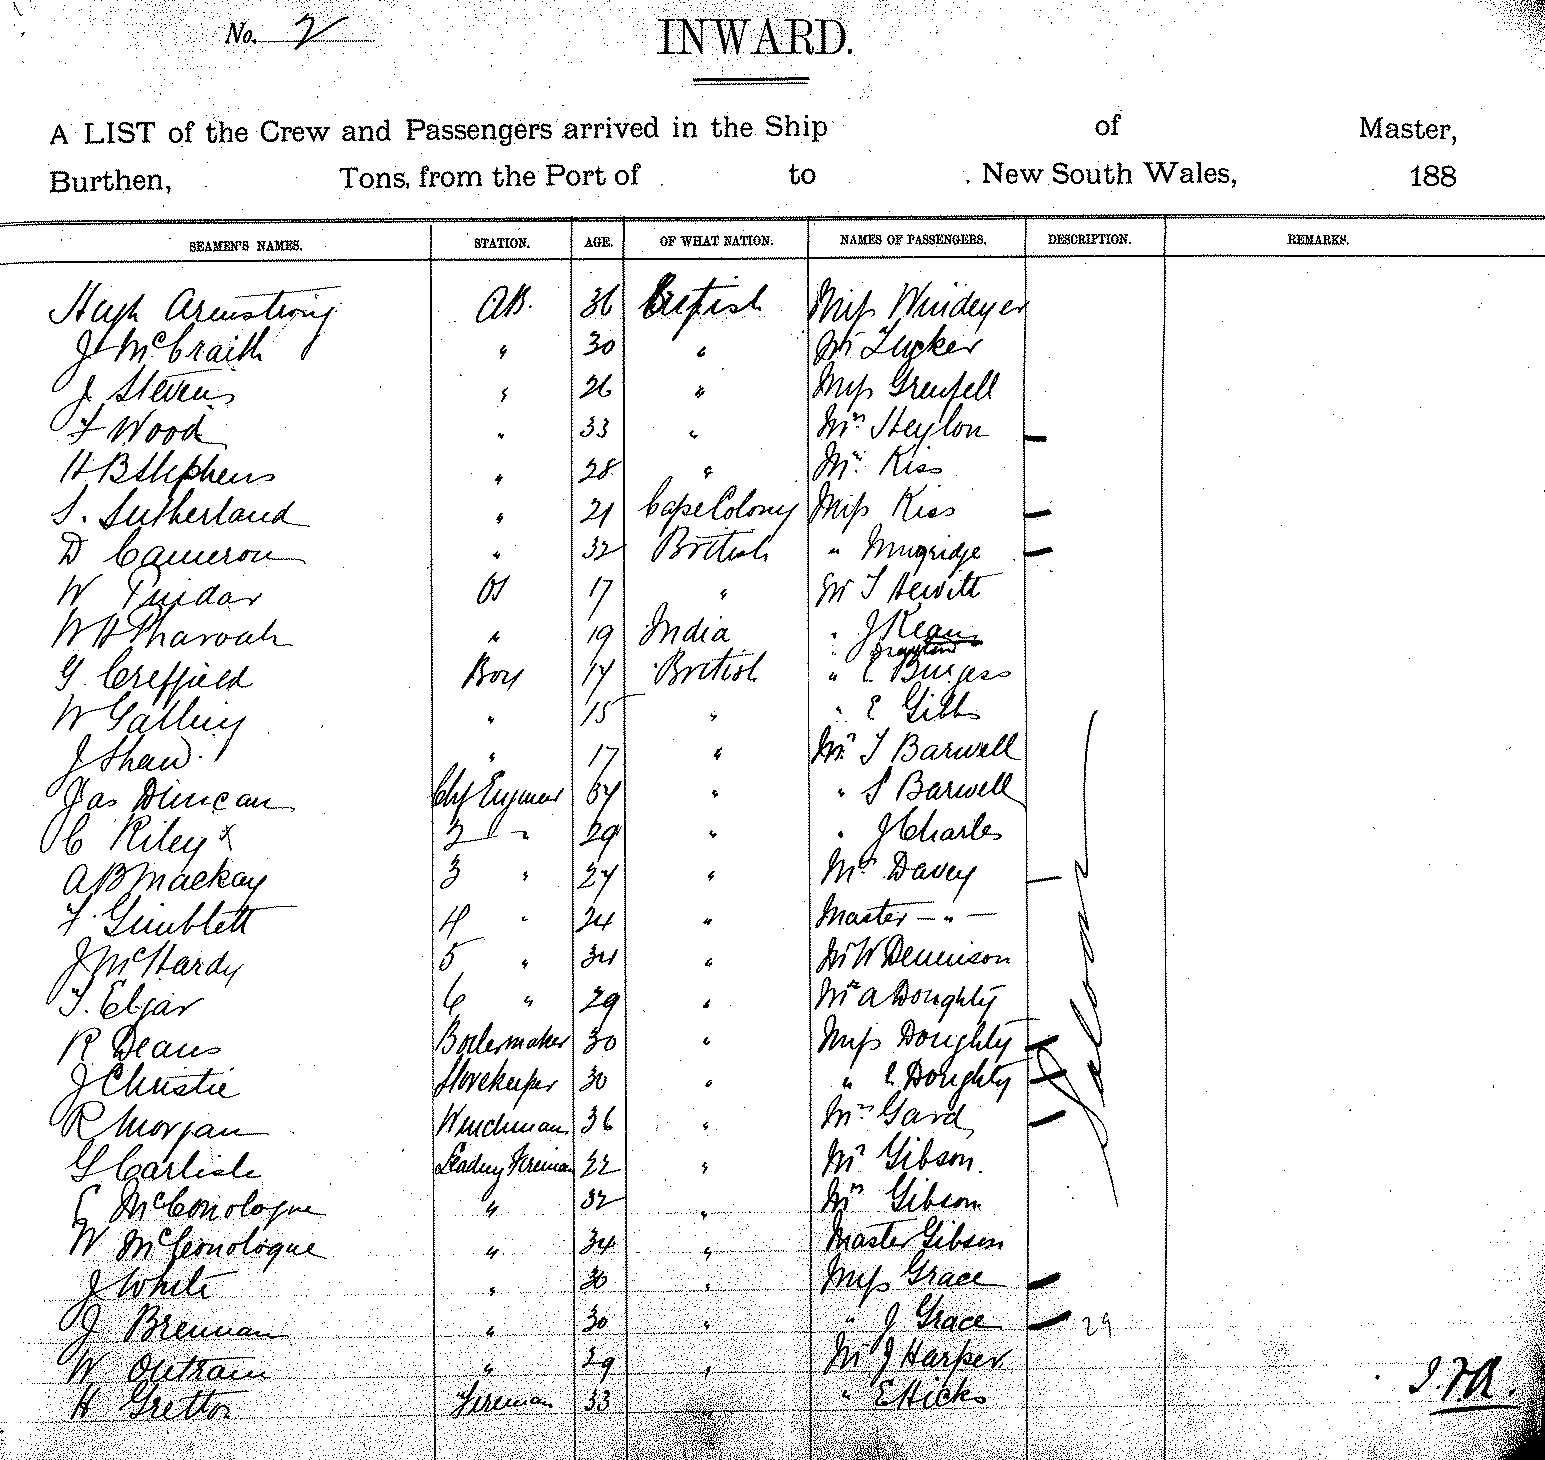 No. 2
INWARD.
A LIST of the Crew and Passengers arrived in the Ship of Master,
Burthen, Tons, from the Port of to New South Wales, 188
SEAMEN'S NAMES. STATION. AGE. OF WHAT NATION. NAMES OF PASSENGERS. DESCRIPTION. REMARKS.
Hugh Armstrong AB. 36 British Miss Windeyer
J McCraith " 30 " Mr Tucker
J Stevens " 26 " Miss Grenfell
F Wood " 33 " Mrs Heylon
H B Stephens " 28 " Mr. Kiss
S. Sutherland " 21 Cape Colony Miss Kiss
D Cameron " 32 British " Mugridge
W OS 17 " Mr T Hewitt
W H Pharoah " 19 India " J Kean
G Creffield Boy 14 British " E Burgess
W Galling " 15 " " E Gibbs
J Shaw. " 17 " Mr T Barwell
Jas Duncan Chf Engineer 34 " " S Barwell
C Riley x 2 " 29 " " J Charles
A B Mackay 3 " 27 " Mrs Davey
F. Gimblett 4 " 24 " Master — " —
J McHardy 5 " 34 " Mr W Dennison
T. Elgar 6 " 29 " Mrs A Doughty
R Deans Boilermaker 30 " Miss Doughty
J Christie Storekeeper 30 " " E Doughty
R Morgan Winchman 36 " Mrs Gard
G Carlisle Leading Fireman 22 " Mr Gibson
McConologue " 32 " Mrs Gibson
W McConologue " 34 " Master Gibson
J White " 30 " Miss Grace
J Brennan " 30 " " J Grace 29
W Outram " 29 " Mr J Harper
H Gretton Fireman 33 " " E Hicks
Saloon